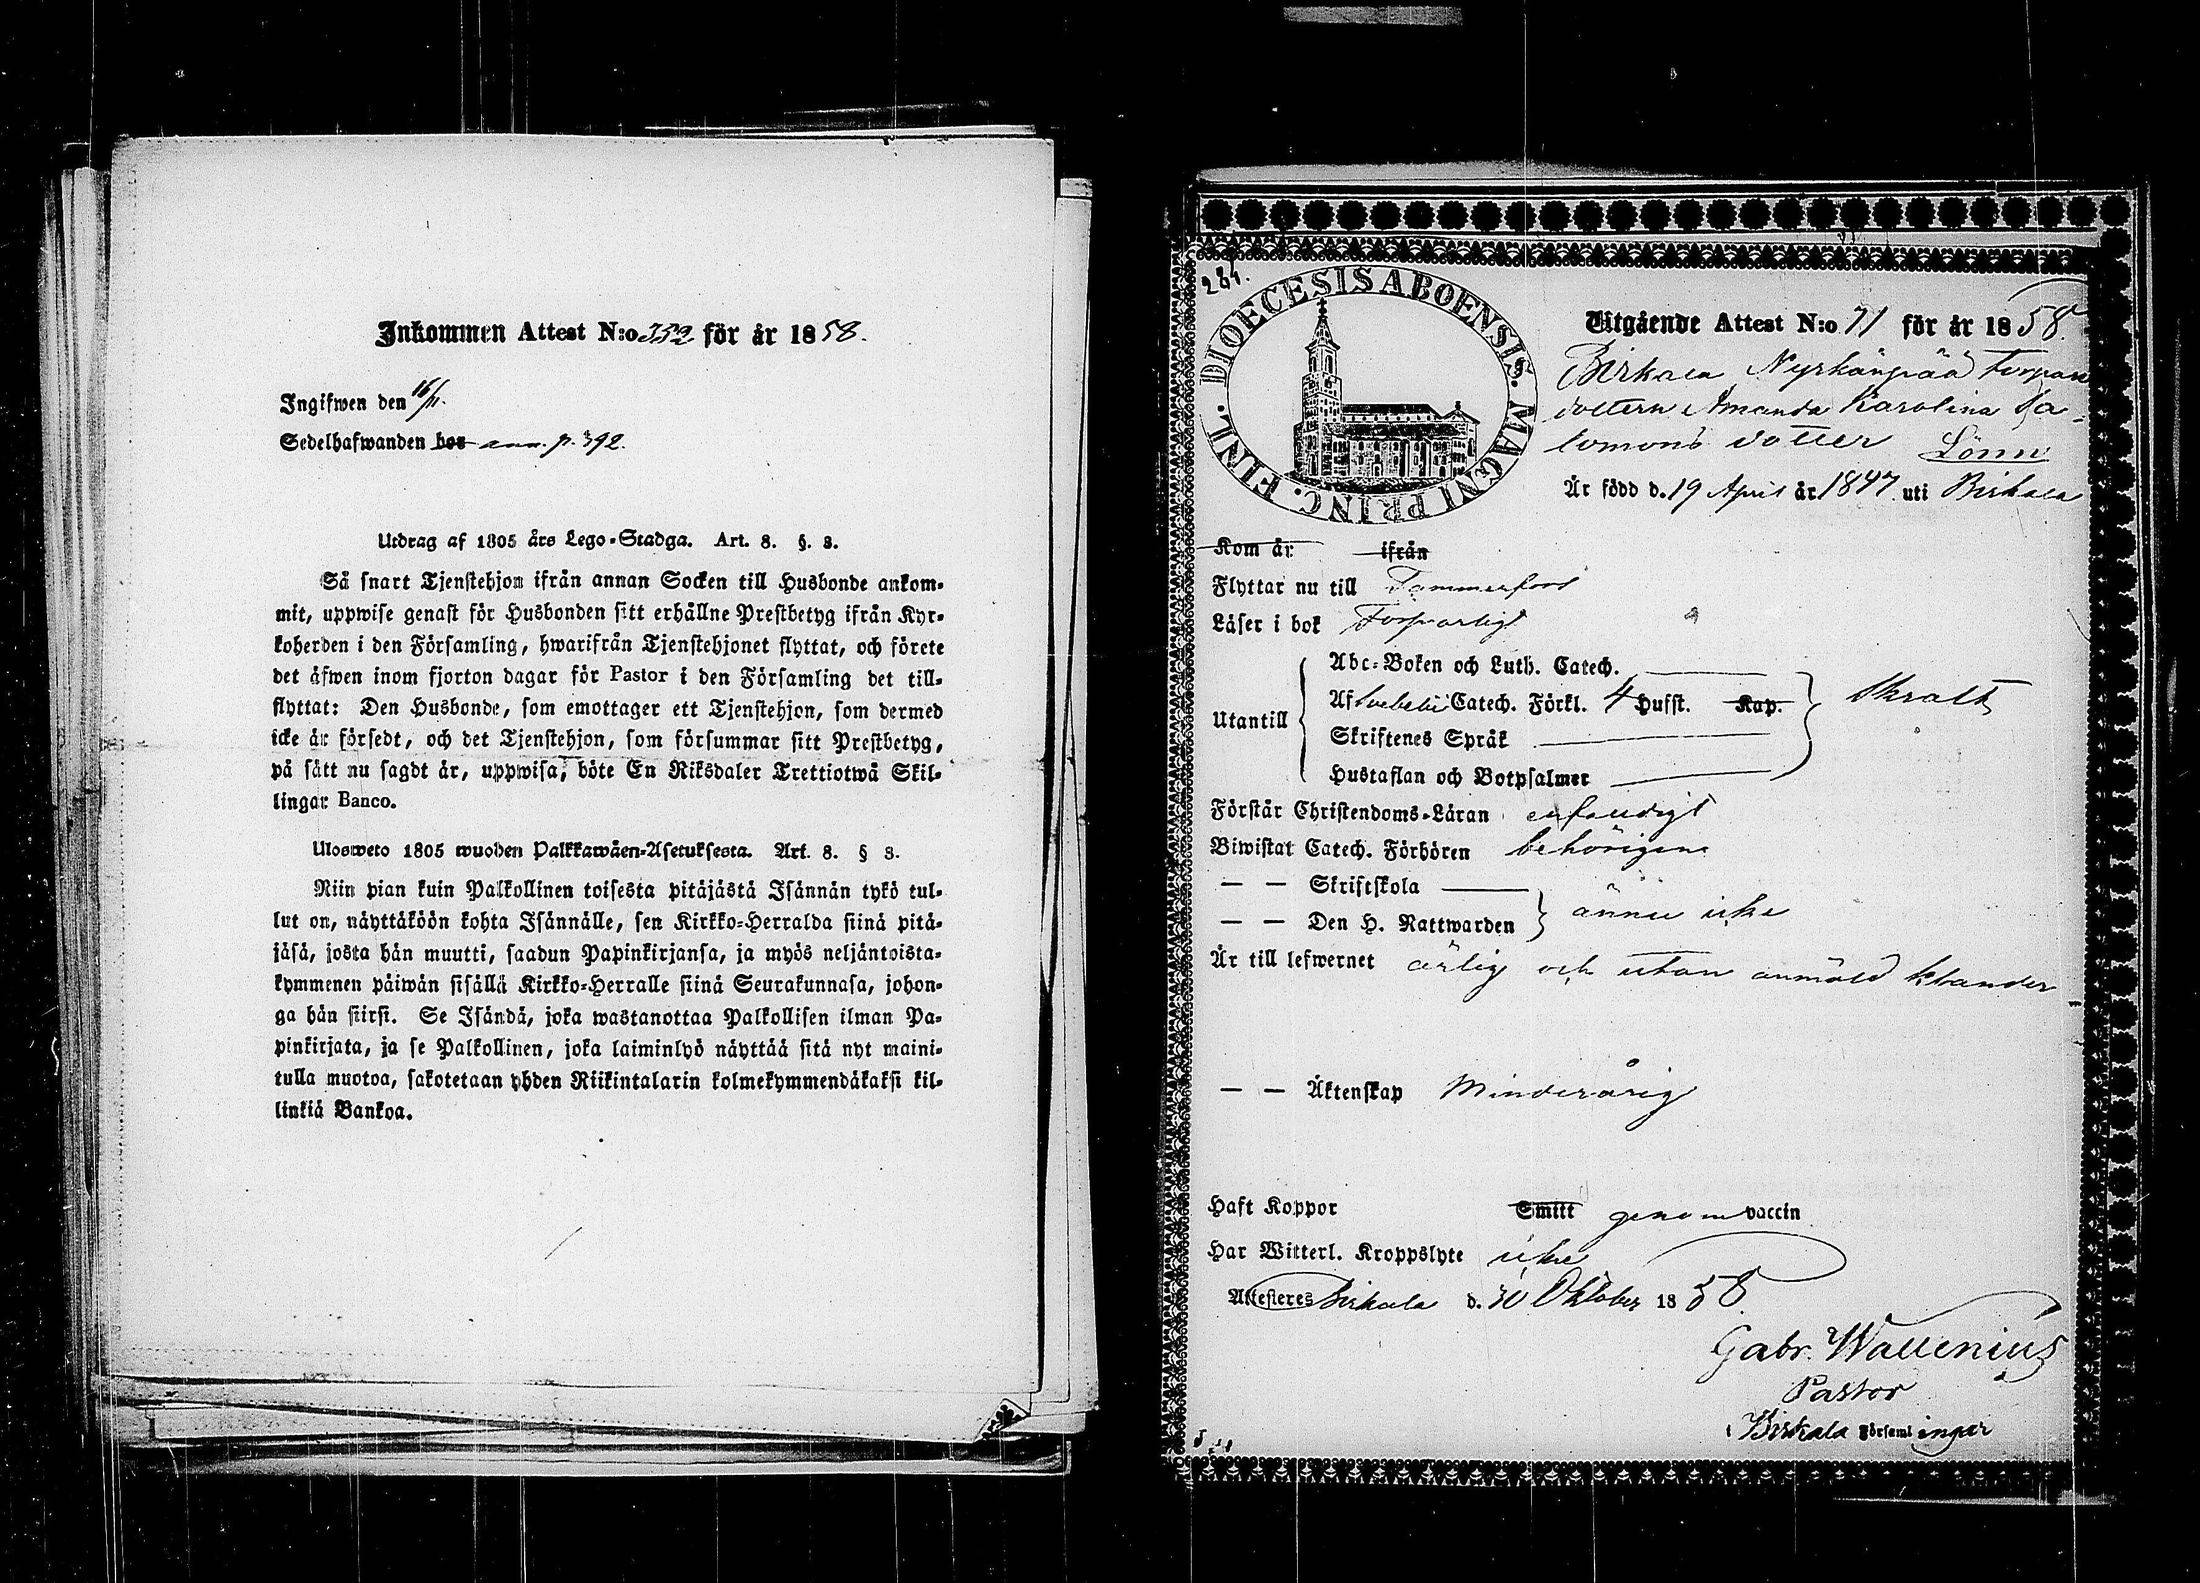 Inkommen Attest N:o 352 för år 1858.
Ingifwen den 16/11.
Sedelhafwanden bor ann. p. 392.
Utdrag af 1805 års Lego-Stadga. Art. 8. §. 8.
Så snart Tjenstehjon ifrån annan Socken till Husbonde ankom-
mit, uppwise genast för Husbonden sitt erhållne Prestbetyg ifrån Kyr-
koherden i den Församling, hwarifrån Tjenstehjonet flyttat, och förete
det äfwen inom fjorton dagar för Pastor i den Församling det till-
flyttat: Den Husbonde, som emottager ett Tjenstehjon, som dermed
icke är försedt, och det Tjenstehjon, som försummar sitt Prestbetyg,
på sätt nu sagdt är, uppwisa, böte En Riksdaler Trettiotwå Skil-
lingar Banco.
Ulosweto 1805 wuoden Palkkawäen-Asetuksesta. Art. 8. § 8.
Niin pian kuin Palkollinen toisesta pitäjästä Isännän tykö tul-
lut on, näyttäköön kohta Isännälle, sen Kirkko-Herralda siinä pitä-
jäsä, josta hän muutti, saadun Papinkirjansa, ja myös neljäntoista-
kymmenen päiwän sisällä Kirkko-Herralle siinä Seurakunnasa, johon-
ga hän siirsi. Se Isändä, joka wastanottaa Palkollisen ilman Pa-
pinkirjata, ja se Palkollinen, joka laiminlyö näyttää sitä nyt maini-
tulla muotoa, sakotetaan yhden Riikintalarin kolmekymmendäkaksi kil-
linkiä Bankoa.
281.
DIOECESIS ABOENSIS. MAGNI PRINC. FINL.
Utgående Attest N:o 71 för år 1858.
Birkala Nyrkänpää torpare
dottern Amanda Karolina Sa-
lomons dotter Lönn
Är född d. 19 April år 1847 uti Birkala
Kom år ifrån
Flyttar nu till Tammerfors
Läser i bok Försvarligt
Abc-Boken och Luth. Catech.
Utantill Af Svebelii Catech. Förkl. 4 Hufst. Kap. Skralt
Skriftenes Språk
Hustaflan och Botpsalmer
Förstår Christendoms-Läran enfaldigt
Biwistat Catech. Förhören behörigen
— — Skriftskola
— — Den H. Nattwarden ännu icke
Är till lefwernet ärlig och utan anmäld klander
— — Äktenskap Minderårig
Haft Koppor Smitt genom vaccin
Har Witterl. Kroppslyte icke
Attesteres Birkala d. 30 Oktober 1858.
Gabr. Wallenius
Pastor
i Birkala Församlingar